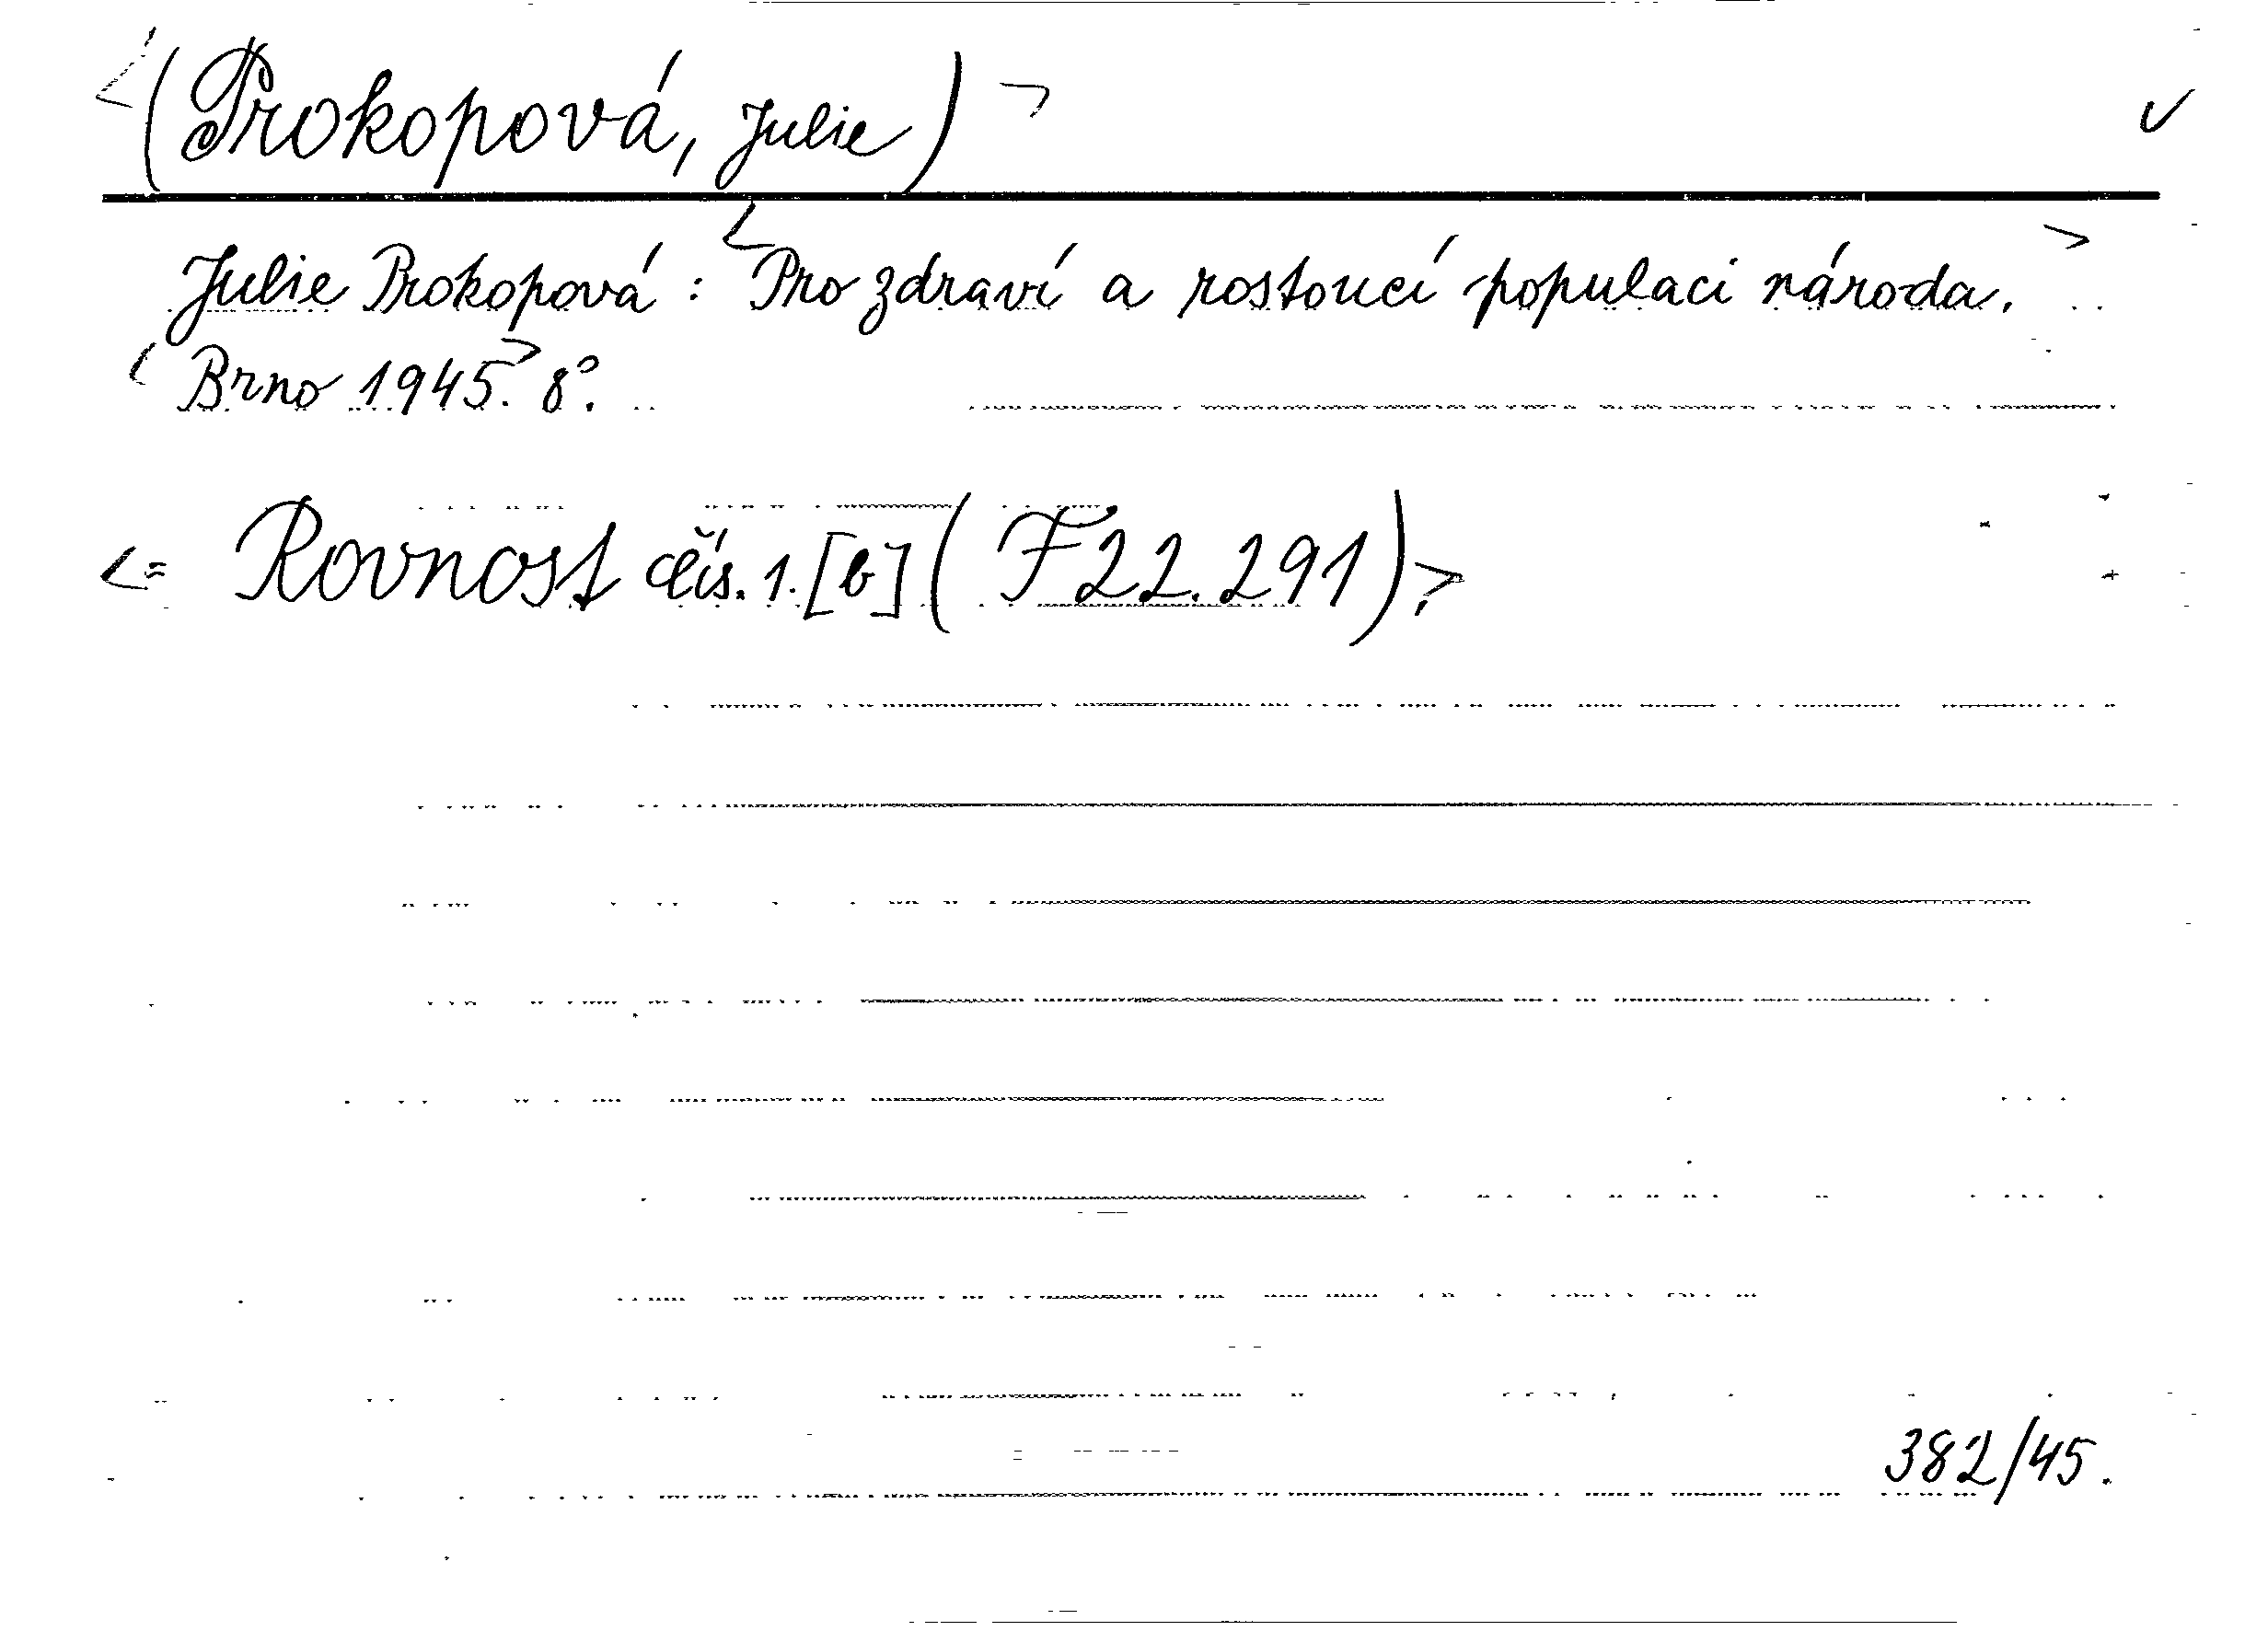 <(Prokopová, Julie)> ✓
Julie Prokopová: <Pro zdraví a rostoucí populaci národa.>
<Brno 1945.> 8°.
<= Rovnost čís. 1. [b] (F 22.291).>
382/45.